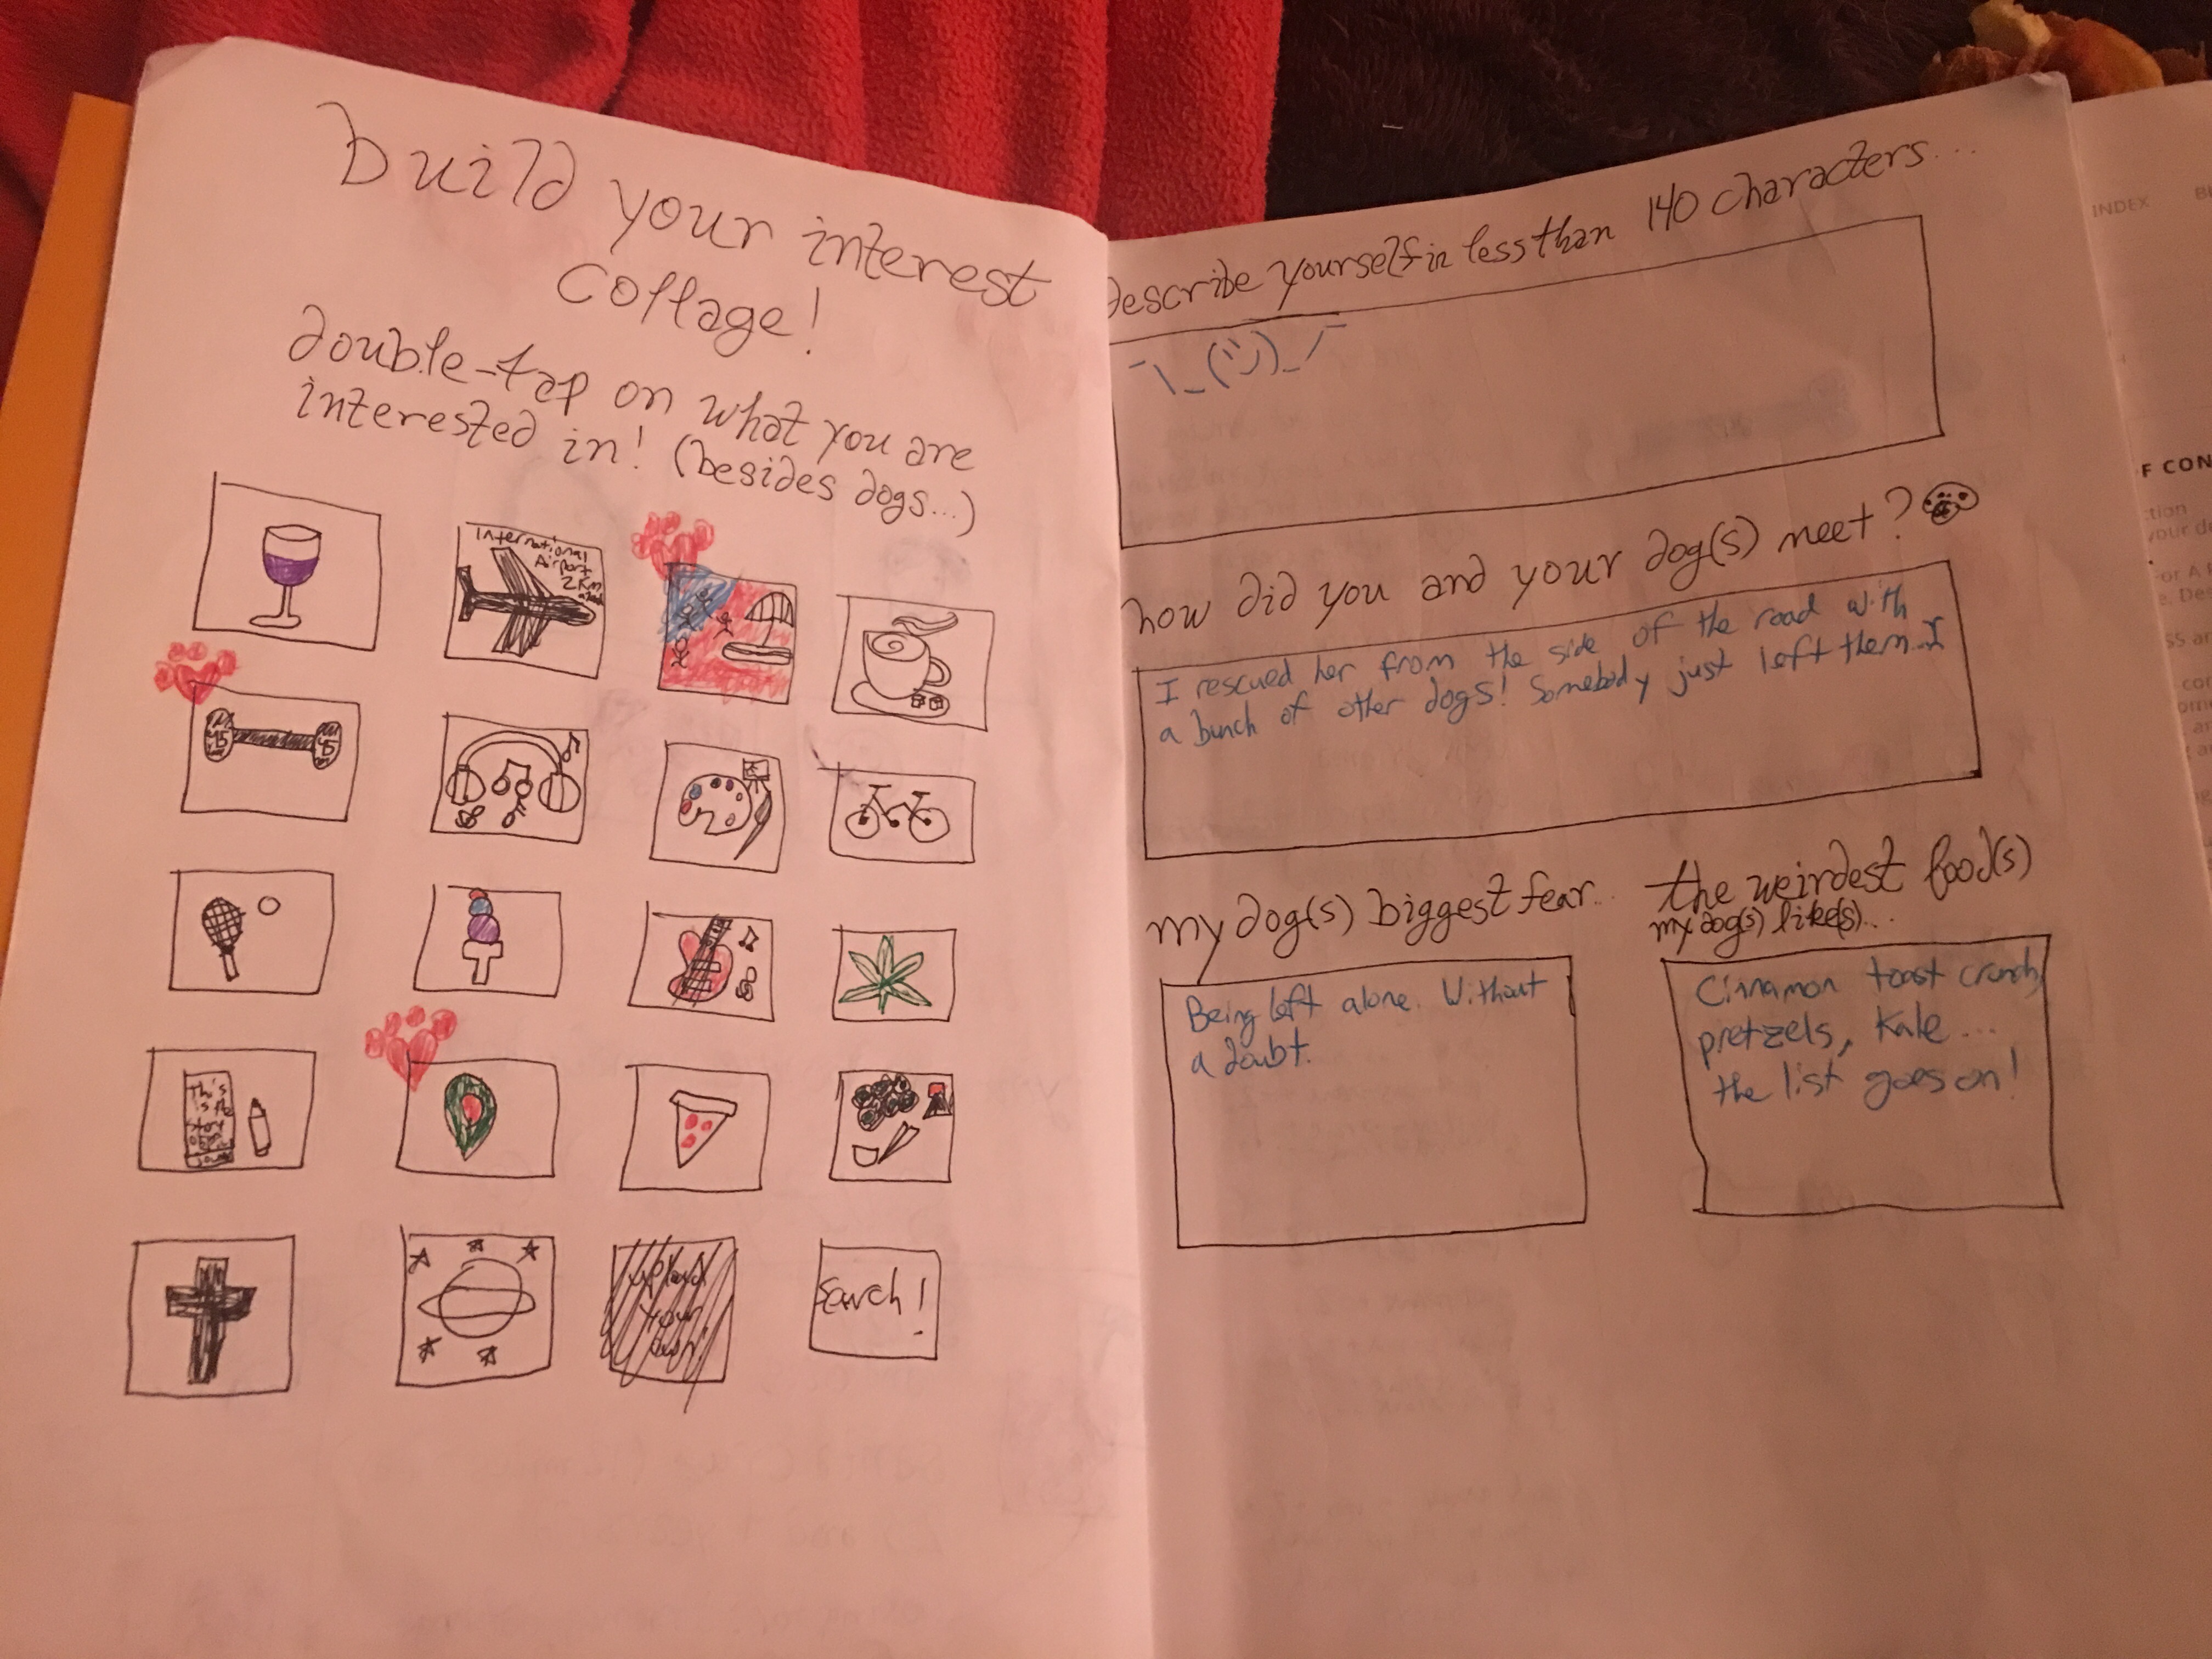 build your interest
collage!
double-tap on what you are
interested in! (besides dogs...)
International
Airport
2 Km
45
45
This
is the
story
search!
describe yourself in less than 140 characters...
¯\_(ツ)_/¯
how did you and your dog(s) meet?
I rescued her from the side of the road with
a bunch of other dogs! Somebody just left them...I
my dog(s) biggest fear...
Being left alone. Without
a doubt.
the weirdest food(s)
my dog(s) like(s)...
Cinnamon toast crunch,
pretzels, kale...
the list goes on!
upload
your
own!
INDEX
F CON